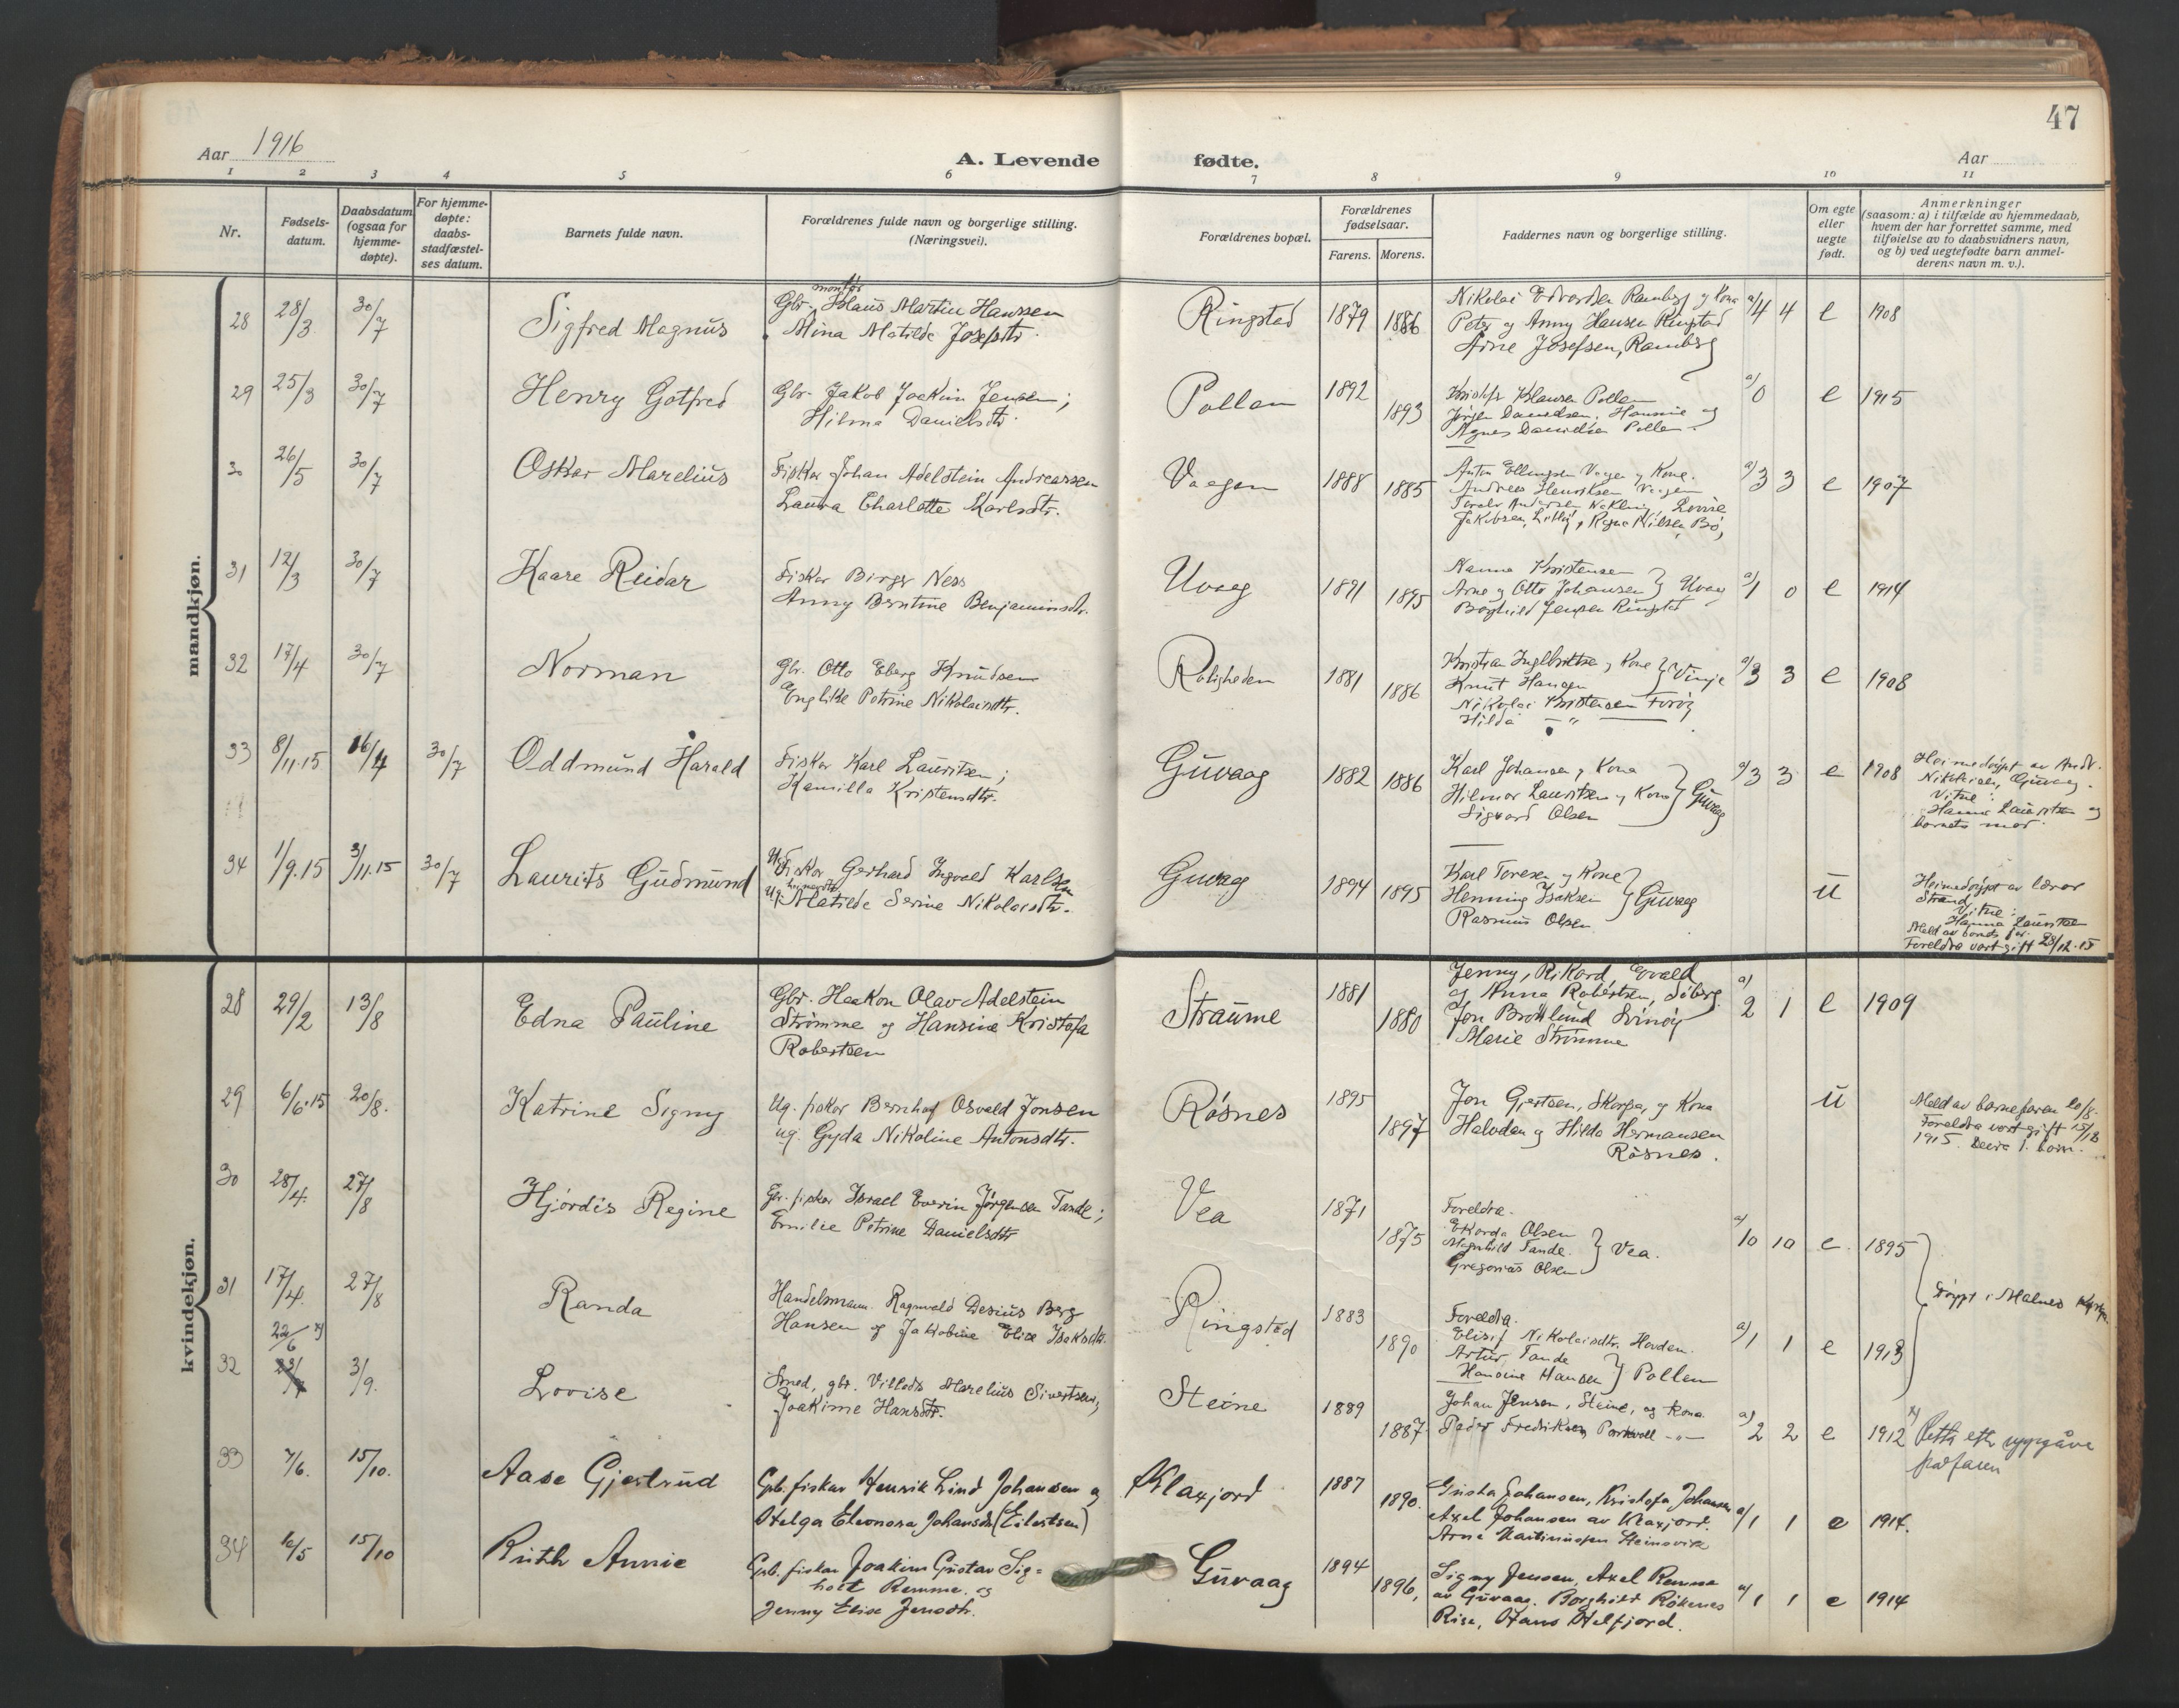 47
Aar 1916
A. Levende fødte.
Aar
1 2 3 4 5 6 7 8 9 10 11
Nr.
Fødsels-
datum.
Daabsdatum
(ogsaa for
hjemme-
døpte).
For hjemme-
døpte:
daabs-
stadfæstel-
ses datum.
Barnets fulde navn.
Forældrenes fulde navn og borgerlige stilling.
(Næringsvei).
Forældrenes bopæl.
Forældrenes
fødselsaar.
Farens. Morens.
Faddernes navn og borgerlige stilling.
Om egte
eller
uegte
født.
Anmerkninger
(saasom: a) i tilfælde av hjemmedaab,
hvem der har forrettet samme, med
tilføielse av to daabsvidners navn,
og b) ved uegtefødte barn anmel-
derens navn m. v.).
mandkjøn.
28 28/3 30/7 Sigfred Magnus
montør
Gbr. Klaus Martin Hanssen
Mina Matilde Josefsdtr.
Ringstad 1879 1886
Nikolai Edvardsen Ramberg og Kona
Peter og Anny Hansen Ringstad
Arne Josefsen, Ramberg
a/4 4 e 1908
29 25/3 30/7 Henry Gotfred
Gbr. Jakob Joakim Jensen;
Hilma Danielsdtr.
Pollen 1892 1893
Kristofr Klausen Pollen
Jørgen Danielsen, Hansine og
Agnes Danielsen Pollen.
a/0 e 1915
30 26/5 30/7 Oskar Marelius
Fisker Johan Adelstein Andreassen
Laura Charlotte Karlsdtr.
Vaagen 1888 1885
Anton Ellingsen Vaagen og Kone.
Andreas Henriksen Vaagen
Andersen Lovise
Jakobsen, Regna Nilsen, Bø,
a/3 3 e 1907
31 12/3 30/7 Kaare Reidar
Fisker Birger Ness
Anny Berntine Benjaminsdtr.
Uvaag 1891 1895
Nanna Kristensen
Arne og Otto Johansen } Uvaag
Borghild Jensen Ringstad
a/1 0 e 1914
32 17/4 30/7 Norman
Gbr. Otto Eberg Knudsen
og Englike Petrine Nikolaisdtr.
Roligheden 1881 1886
Kristian Ingebrittsen og Kone } Vinje
Knut Hansen
Nikolai Kristensen Forøy
Hilda — " —
a/3 3 e 1908
33 8/11.15 16/4 30/7 Oddmund Harald
Fisker Karl Lauritsen;
Kamilla Kristensdtr.
Guvaag 1882 1886
Karl Johansen og Kona
Hilmar Lauritsen og Kona } Guvaag
Sigvard Olsen
a/3 3 e 1908
Heimedøypt av Andr.
Nikolaisen, Guvaag.
Vitne:
Hanna Lauritsen og
barnets mor.
34 1/9.15 3/11.15 30/7 Laurits Gudmund
Ug. Fisker Gerhard Ingvald Karlsen
Ug. Matilde Serine Nikolaisdtr.
Guvaag 1894 1895
Karl Toresen og Kone
Henning Isaksen } Guvaag
Rasmus Olsen
u
Heimedøypt av lærar
Strand
Vitne:
Hanna Lauritsen
Meld av barnets far.
Foreldra vart gift 28/12.15
kvindekjøn.
28 29/2 13/8 Edna Pauline
Gbr. Haakon Olav Adelstein
Strømme og Hansine Kristofa
Robertsen
Straume 1881 1880
Jenny, Rikard, Evald
og Anna Robertsen, Søberg
Jon Brottlund Svinøy
Marie Strømme
a) 2 1 e 1909
29 6/6.15 20/8. Katrine Signy
Ug. fisker Bernhof Osvald Jonsen
ug. Gyda Nikoline Antonsdtr.
Røsnes 1895 1897
Jon Gjertsen, Skorpa, og Kona
Halvdan og Hilda Hermansen
Røsnes.
u
Meld av barnefaren 20/8.
Foreldra vart gift 15/12
1915. Deira 1. barn.
30 28/4. 27/8 Hjørdis Regine
Gbr. fisker Israel Everin Jørgensen Tande;
Emilie Petrine Danielsdtr
Vea 1871 1875
Foreldra.
Ekarda Olsen
Magnhild Tande. } Vea.
Gregorius Olsen
a/10 10 e. 1895
31 17/4. 27/8 Randa
Handelsmann Ragnvald Desius Berg
Hansen og Jakobine Elise Isaksdtr.
Ringstad 1883 1890
Foreldra.
Elisif Nikolaisdtr. Hovden.
Artur Tande
Hansine Hansen } Pollen
a/1 1 e 1913
Døypt i Malnes Kyrkje.
32 22/6 x) 3/9. Lovise
Smed, gbr. Villads Marelius Sivertsen;
Joakime Hansdtr.
Steine 1889 1887
Johan Jensen, Steine, og Kona
Peder Fredriksen Parkvoll —"—
a) 2 2 e 1912
x) Retta etter uppgåve
frå faren
33 7/6. 15/10. Aase Gjertrud
Gpb. fisker Henrik Lind Johansen og
Helga Eleonora Johansdtr (Eilertsen)
Klaxjord 1887 1890.
Gusta Johansen, Kristofa Johansen
Axel Johansen av Klaxjord.
Arne Martinussen Steinsvik
a/1 1 e 1914.
34 /5 15/10 Ruth Annie
Gpb. fisker Joakim Gustav Sig=
holt Remme og
Jenny Elise Jensdtr.
Guvaag 1894 1896,
Signy Jensen, Axel Remme
av Guvaag. Borghild Rökenes
Rise, Hans Helfjord.
a/1 1 e 1914